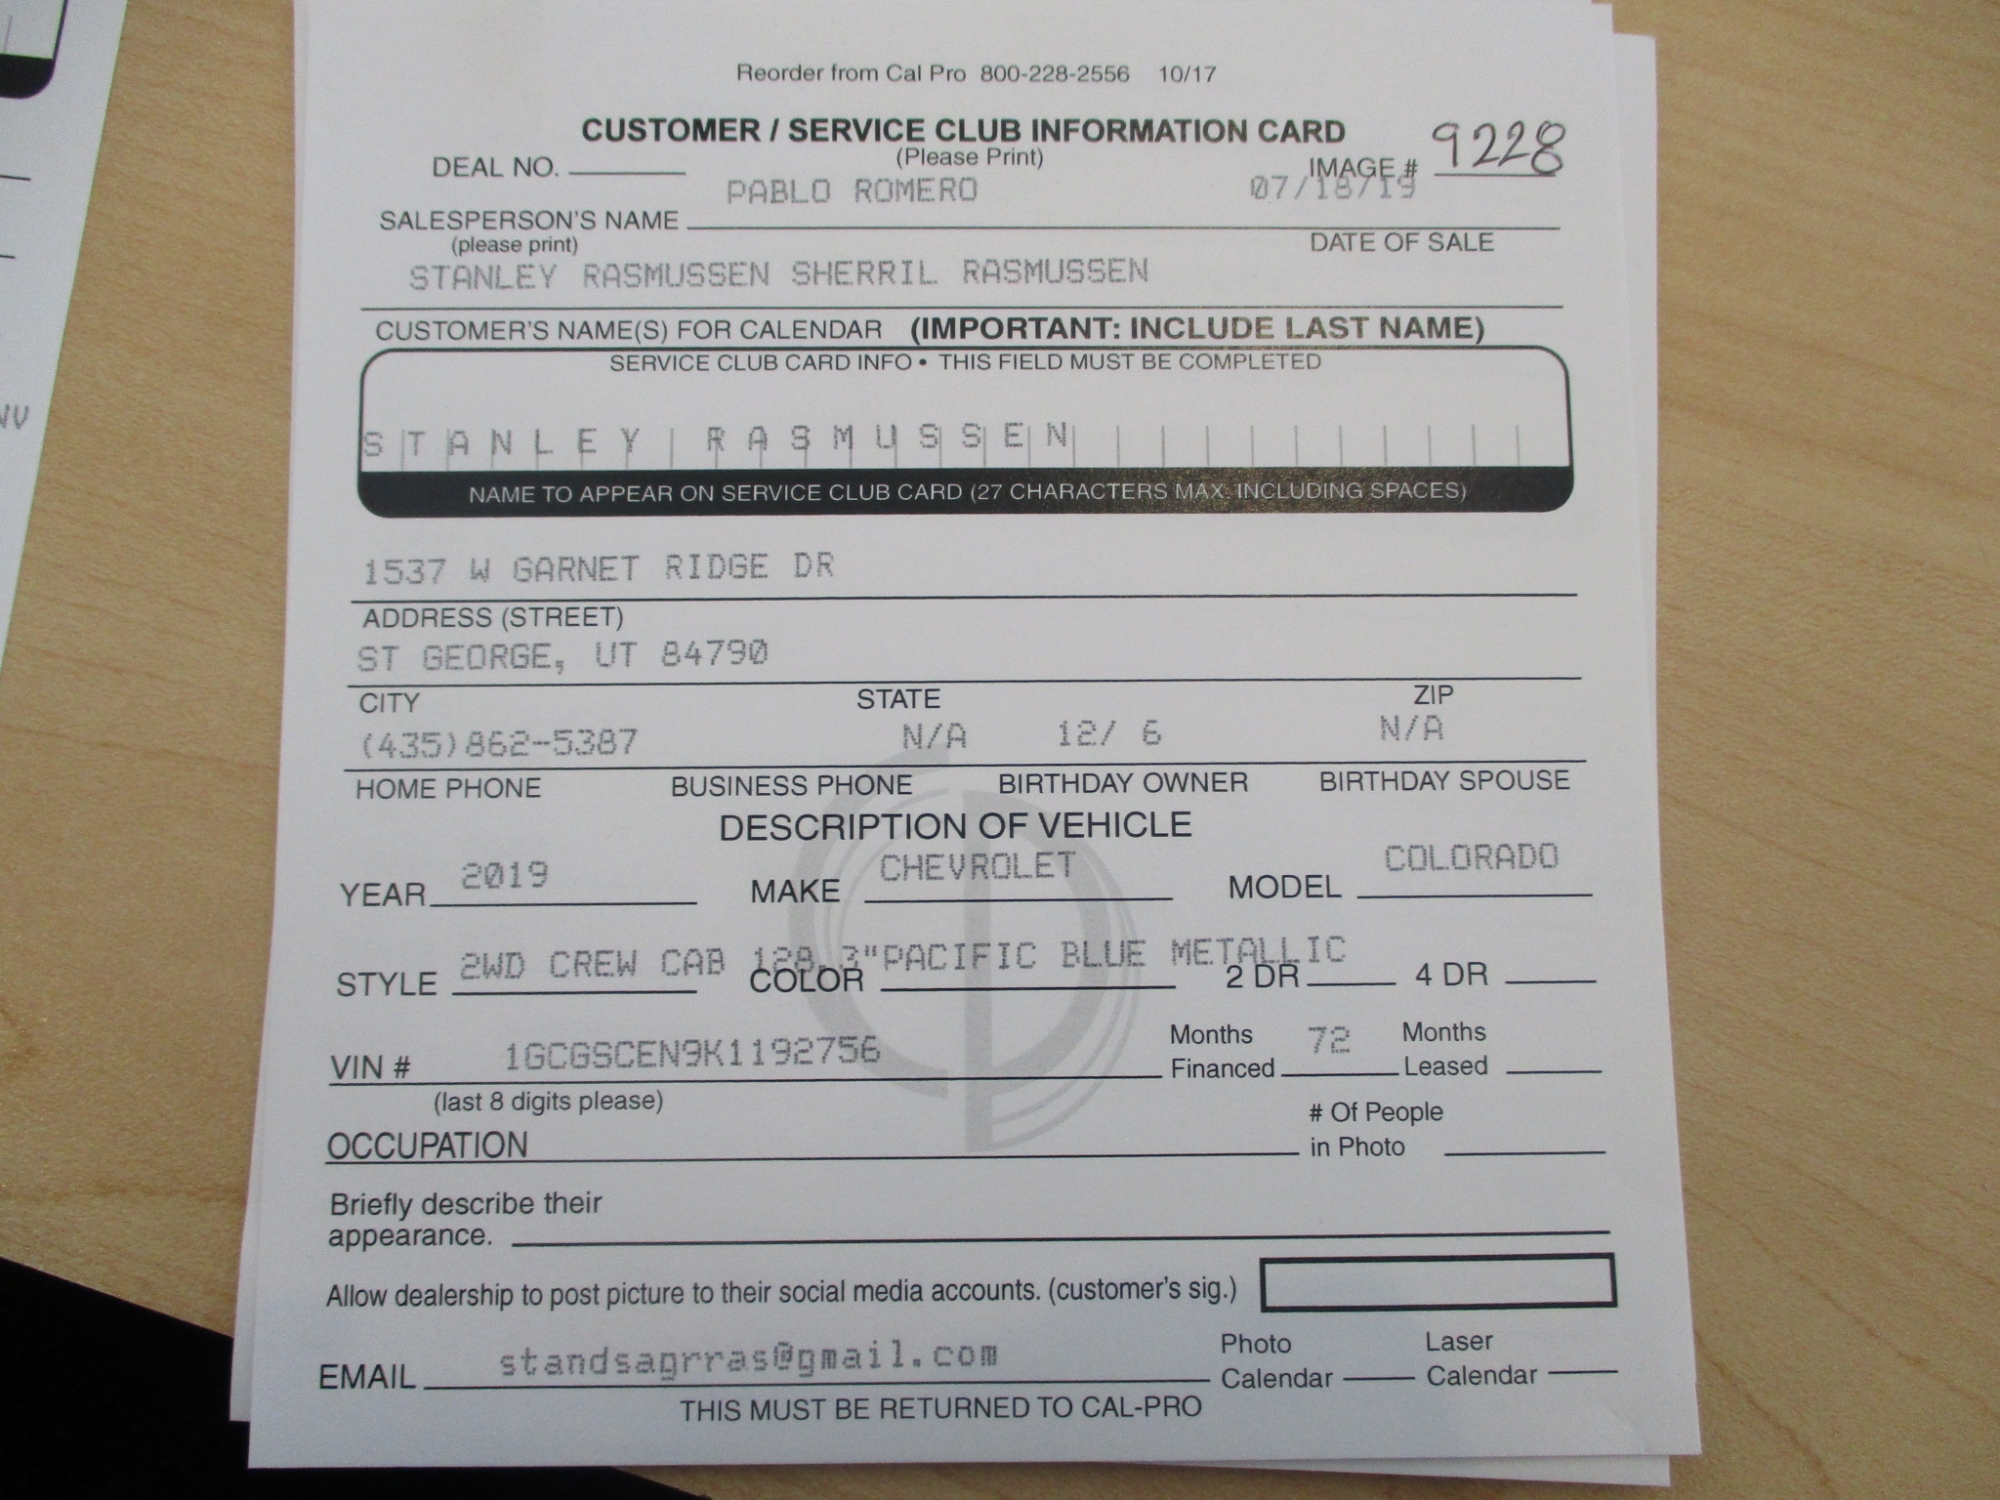 Reorder from Cal Pro 800-228-2556 10/17
CUSTOMER / SERVICE CLUB INFORMATION CARD
(Please Print)
DEAL NO. IMAGE # 9228
PABLO ROMERO 07/18/19
SALESPERSON'S NAME
(please print) DATE OF SALE
STANLEY RASMUSSEN SHERRIL RASMUSSEN
CUSTOMER'S NAME(S) FOR CALENDAR (IMPORTANT: INCLUDE LAST NAME)
SERVICE CLUB CARD INFO • THIS FIELD MUST BE COMPLETED
STANLEY RASMUSSEN
NAME TO APPEAR ON SERVICE CLUB CARD (27 CHARACTERS MAX. INCLUDING SPACES)
NV
1537 W GARNET RIDGE DR
ADDRESS (STREET)
ST GEORGE, UT 84790
CITY STATE ZIP
(435)862-5387 N/A 12/ 6 N/A
HOME PHONE BUSINESS PHONE BIRTHDAY OWNER BIRTHDAY SPOUSE
DESCRIPTION OF VEHICLE
YEAR 2019 MAKE CHEVROLET MODEL COLORADO
STYLE 2WD CREW CAB 128.3" COLOR PACIFIC BLUE METALLIC 2 DR 4 DR
VIN # 1GCGSCEN9K1192756 Months Financed 72 Months Leased
(last 8 digits please)
OCCUPATION # Of People in Photo
Briefly describe their
appearance.
Allow dealership to post picture to their social media accounts. (customer's sig.)
EMAIL standsagrras@gmail.com Photo Calendar Laser Calendar
THIS MUST BE RETURNED TO CAL-PRO